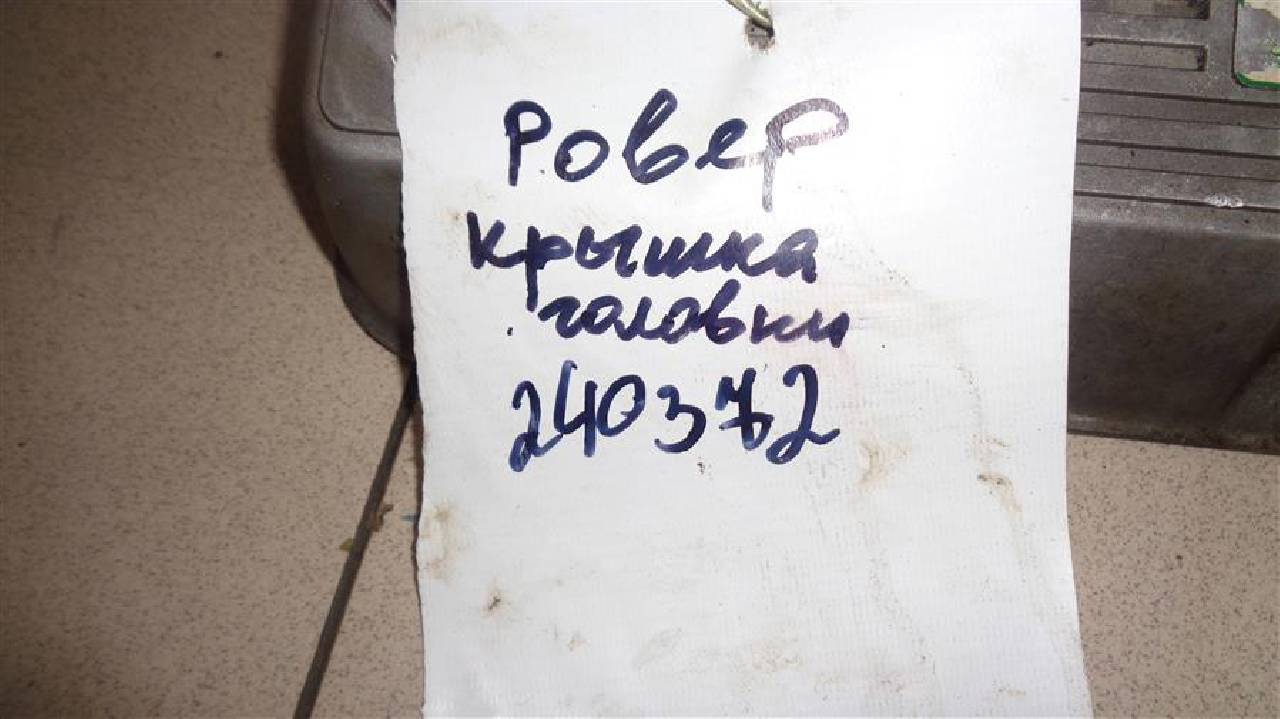 Ровер
крышка
головки
240372